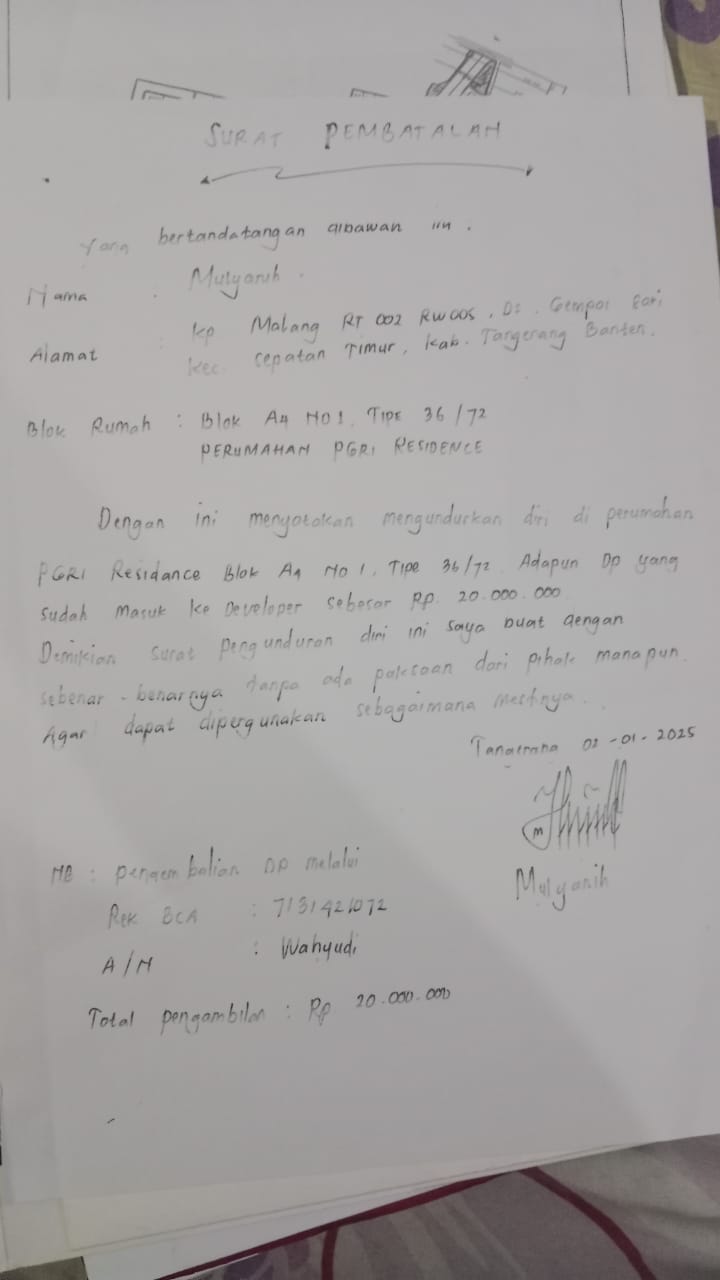 SURAT PEMBATALAH
Yang bertandatangan dibawah ini.
Nama : Mulyanih.
Alamat : Kp Malang RT 002 RW 005, Ds. Gempol Sari
Kec. Sepatan Timur, Kab. Tangerang Banten.
Blok Rumah : Blok A4 NO 1, TIPE 36/72
PERUMAHAN PGRI RESIDENCE
Dengan ini menyatakan mengundurkan diri di perumahan
PGRI Residance Blok A4 NO 1. Tipe 36/72. Adapun Dp yang
sudah Masuk ke Developer sebesar Rp. 20.000.000
Demikian surat pengunduran diri ini saya buat dengan
sebenar-benarnya tanpa ada paksaan dari pihak manapun.
Agar dapat dipergunakan sebagaimana mestinya.
Tangerang 02-01-2025
Mulyanih
NB : pengembalian DP melalui
Rek BCA : 7131421072
A/N : Wahyudi
Total pengambilan : Rp 20.000.000